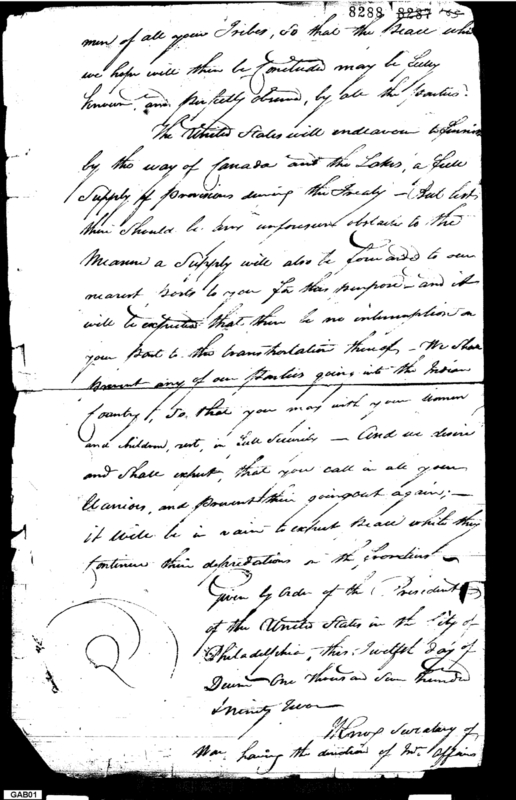 8288 8287 55
men of all your Tribes, So that the Peace which
we hope will then be Concluded may be fully
Known, and perfectly observed, by all the parties.
The United States will endeavour to furnish
by the way of Canada and the Lakes, a full
Supply of provisions during the Treaty — But lest
there should be any unforeseen obstacles to the
Measure a Supply will also be forwarded to our
nearest posts to you for this purpose — and it
will be expected that there be no interruption on
your Part to the transportation thereof — We shall
prevent any of our Parties going into the Indian
Country, So that you may with your women
and children, rest, in full Security — And we desire
and shall expect, that you call in all your
Warriors, and prevent their going out again; —
it will be in vain to expect Peace while they
Continue their depredations on the frontiers —
Given by Order of the President
of the United States in the City of
Philadelphia, this Twelfth Day of
One thousand Seven Hundred
& Ninety two
HKnox Secretary of
War, having the direction of Ind. Affairs
GAB01